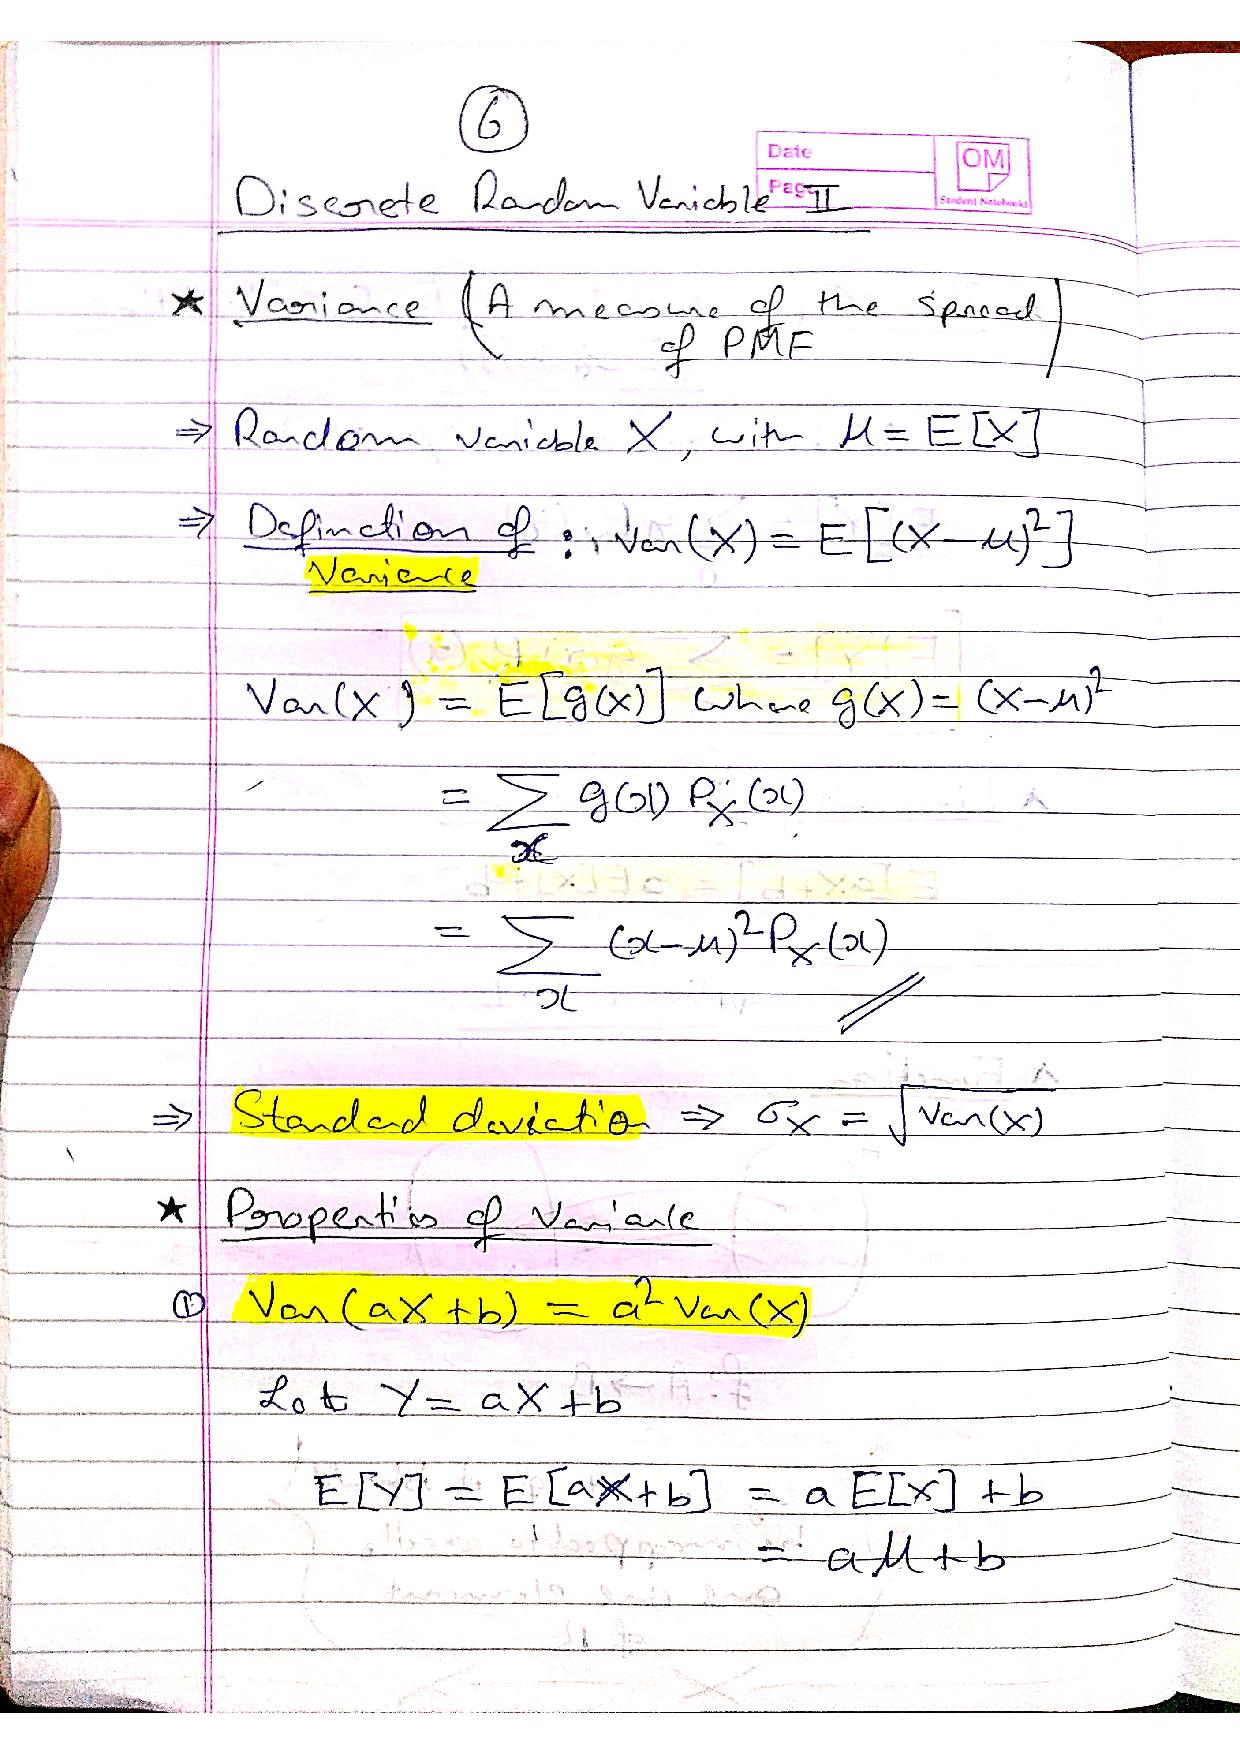 6
Date
Page
OM
Student Notebooks
Discrete Random Variable II
★ Variance (A measure of the spread
of PMF)
⇒ Random variable X, with μ = E[X]
⇒ Definction of : Var(X) = E[(X-μ)²]
Variance
Var(X) = E[g(X)] where g(X) = (X-μ)²
= ∑ g(x) P_X(x)
x
= ∑ (x-μ)² P_X(x)
x
⇒ Standard deviction ⇒ σ_X = √Var(X)
★ Properties of Variance
① Var(aX+b) = a² Var(X)
Let Y = aX+b
E[Y] = E[aX+b] = a E[X] + b
= aμ+b